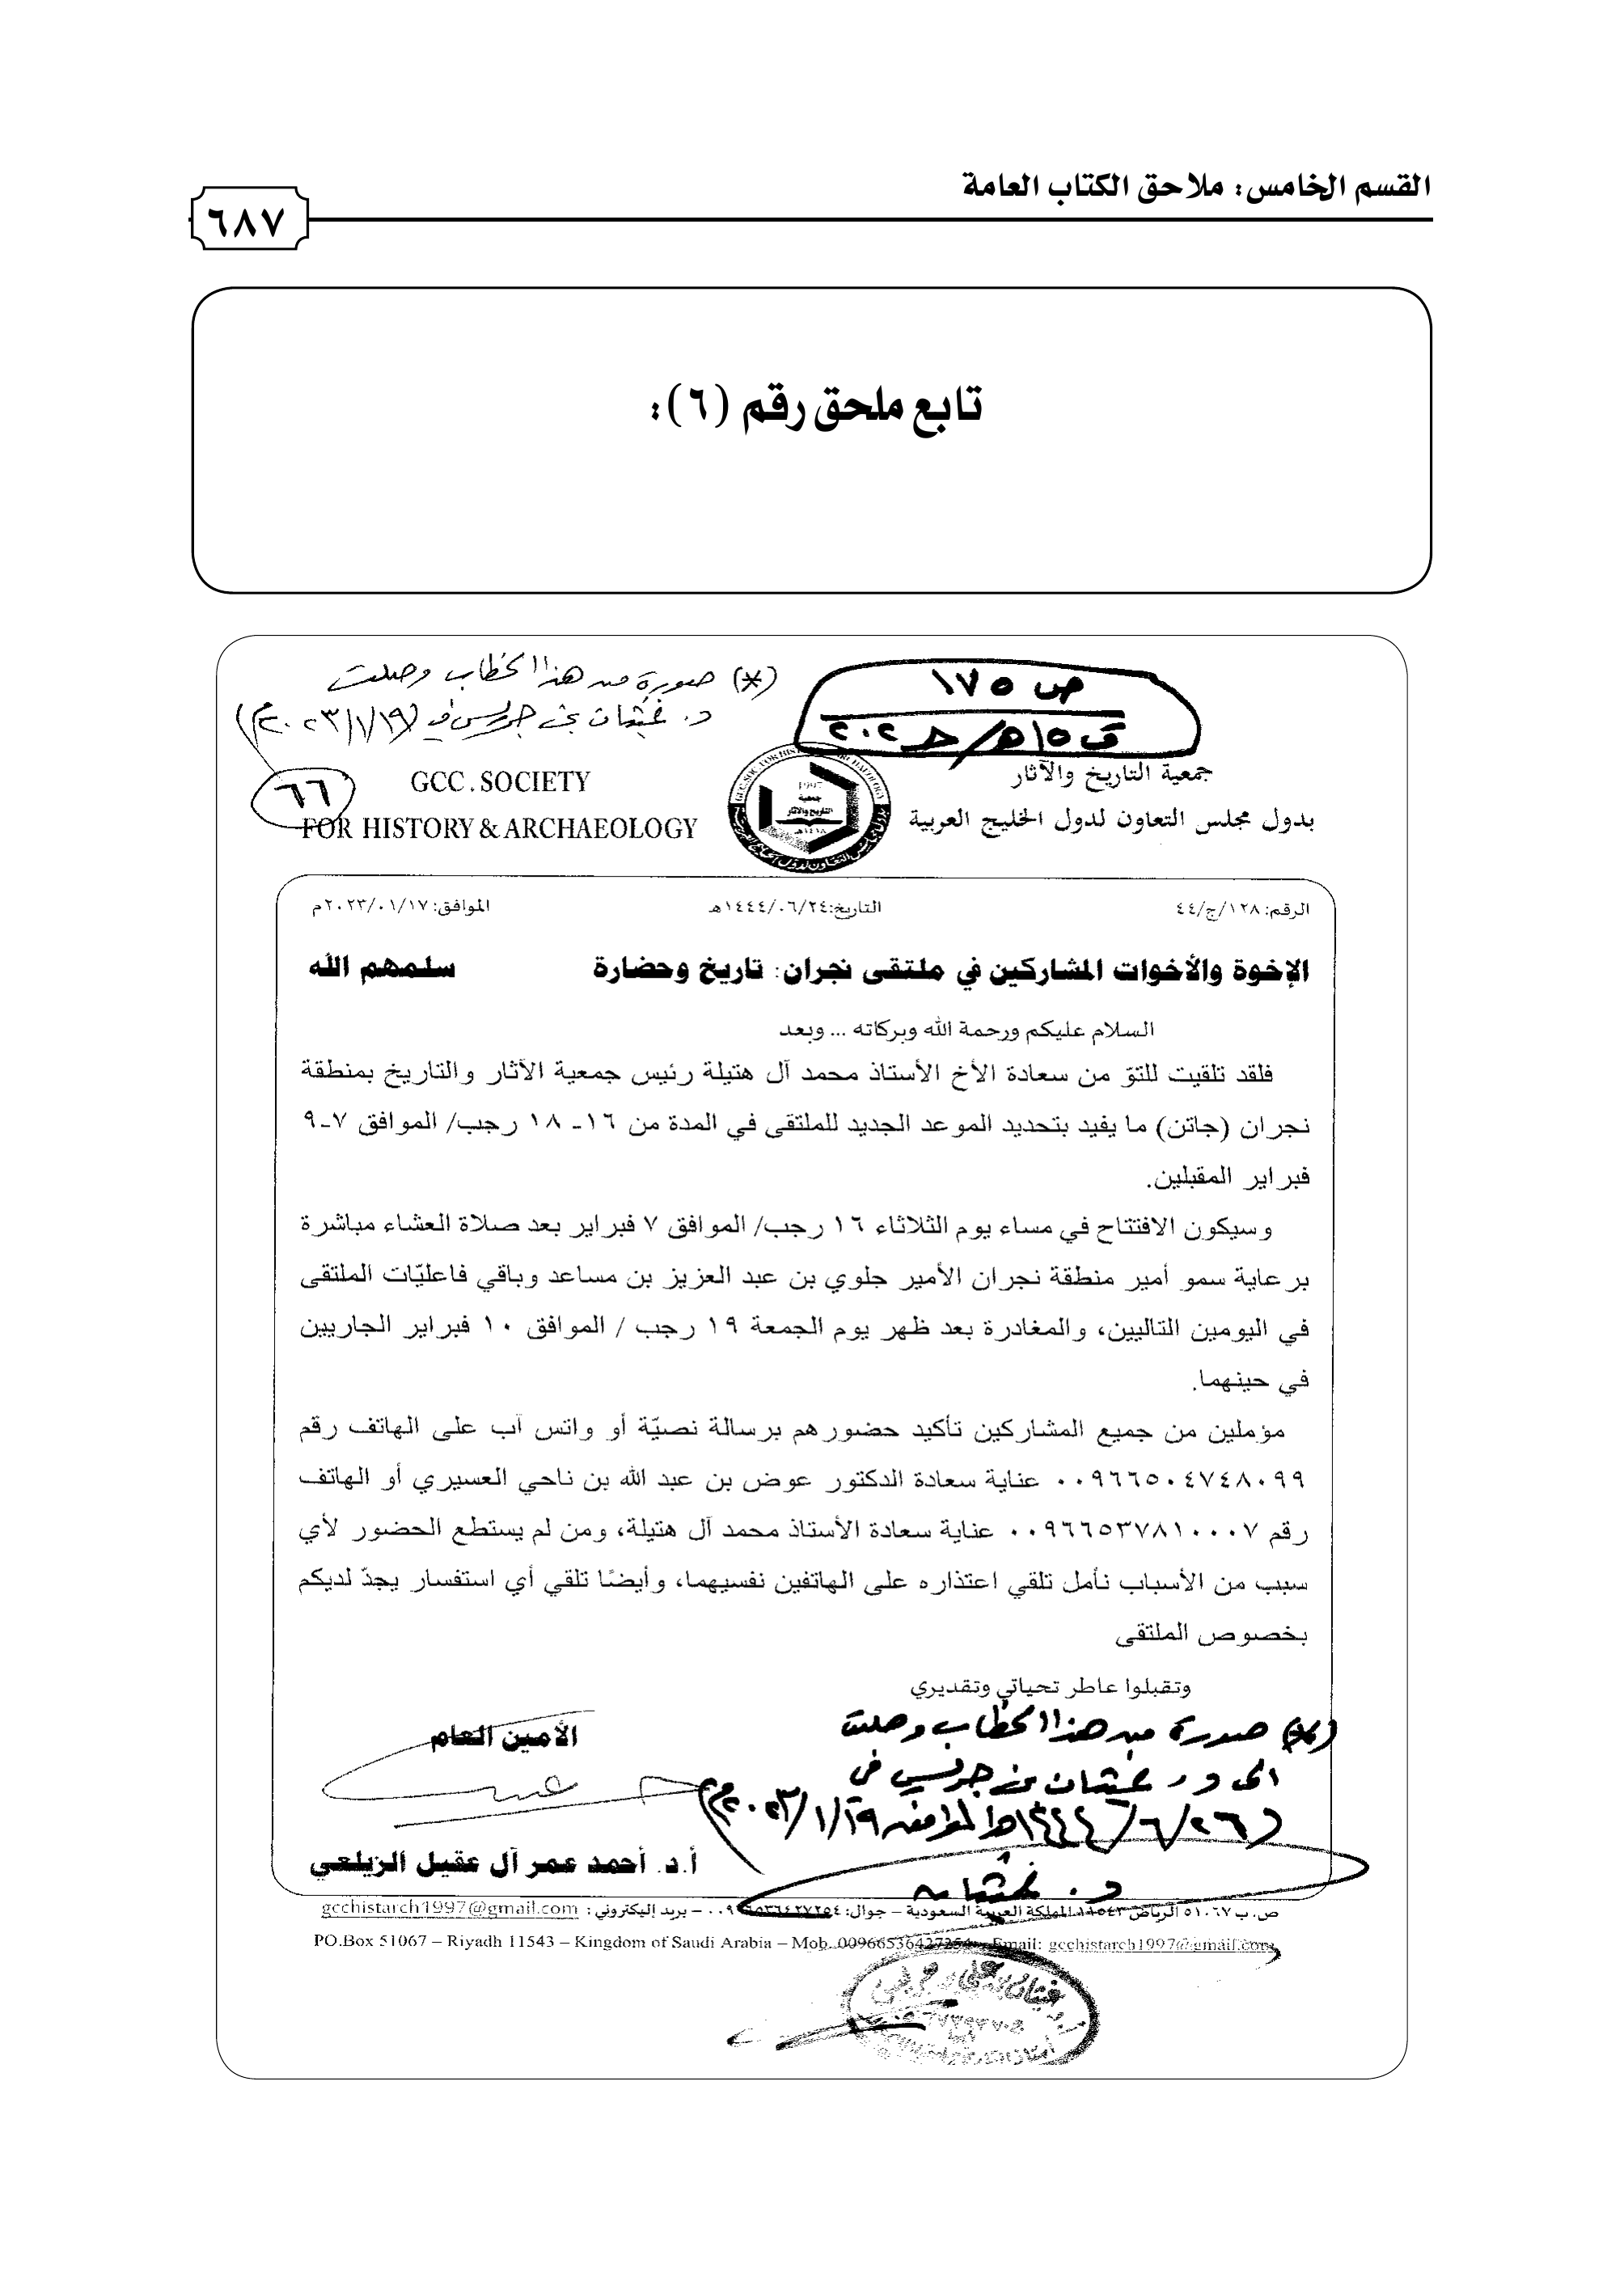 القسم الخامس: ملاحق الكتاب العامة
٦٨٧
تابع ملحق رقم (٦):
(*) صورة من هذا الخطاب وصلت
د. غيثان بن جريس في (٢٠٢٣/١/١٩م)
ص ١٧٥
٦٦
جمعية التاريخ والآثار
بدول مجلس التعاون لدول الخليج العربية
GCC. SOCIETY
FOR HISTORY & ARCHAEOLOGY
الرقم: ١٢٨/ج/٤٤
التاريخ:١٤٤٤/٠٦/٢٤هـ
الموافق: ٢٠٢٣/٠١/١٧م
الإخوة والأخوات المشاركين في ملتقى نجران: تاريخ وحضارة سلمهم الله
السلام عليكم ورحمة الله وبركاته ... وبعد
فلقد تلقيت للتوّ من سعادة الأخ الأستاذ محمد آل هتيلة رئيس جمعية الآثار والتاريخ بمنطقة
نجران (جاتن) ما يفيد بتحديد الموعد الجديد للملتقى في المدة من ١٦- ١٨ رجب/ الموافق ٧-٩
فبراير المقبلين.
وسيكون الافتتاح في مساء يوم الثلاثاء ١٦ رجب/ الموافق ٧ فبراير بعد صلاة العشاء مباشرة
برعاية سمو أمير منطقة نجران الأمير جلوي بن عبد العزيز بن مساعد وباقي فاعليّات الملتقى
في اليومين التاليين، والمغادرة بعد ظهر يوم الجمعة ١٩ رجب / الموافق ١٠ فبراير الجاريين
في حينهما.
مؤملين من جميع المشاركين تأكيد حضورهم برسالة نصيّة أو واتس آب على الهاتف رقم
٠٠٩٦٦٥٠٤٧٤٨٠٩٩ عناية سعادة الدكتور عوض بن عبد الله بن ناحي العسيري أو الهاتف
رقم ٠٠٩٦٦٥٣٧٨١٠٠٠٧ عناية سعادة الأستاذ محمد آل هتيلة، ومن لم يستطع الحضور لأي
سبب من الأسباب نأمل تلقي اعتذاره على الهاتفين نفسيهما، وأيضًا تلقي أي استفسار يجدّ لديكم
بخصوص الملتقى
وتقبلوا عاطر تحياتي وتقديري
الأمين العام
(*) صورة من هذا الخطاب وصلت
الى د. غيثان بن جريس في
(١٤٤٤/٦/٢٦هـ الموافق ٢٠٢٣/١/١٩م)
أ.د. أحمد عمر آل عقيل الزيلعي
د. غيثان
ص. ب ٥١٠٦٧ الرياض ١١٥٤٣ المملكة العربية السعودية – جوال: ٠٠٩٦٦٥٣٦٤٢٧٢٥٤ – بريد إليكتروني: gcchistarch1997@gmail.com
PO.Box 51067 – Riyadh 11543 – Kingdom of Saudi Arabia – Mob. 00966536427254 – Email: gcchistarch1997@gmail.com